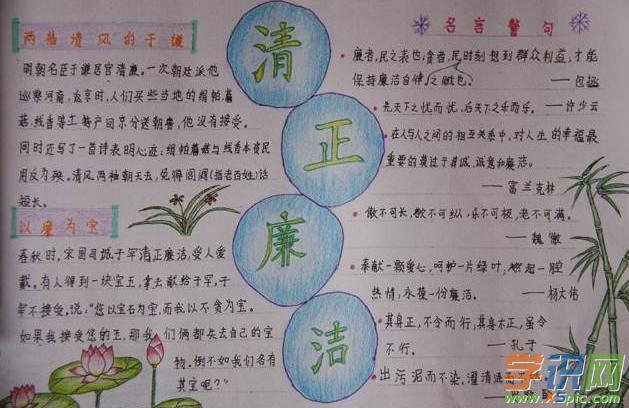 两袖清风的于谦
明朝名臣于谦居官清廉。一次朝廷派他
巡察河南，返京时，人们买些当地的绢帕、蘑
菇、线香等土特产回京分送朝贵，他没有接受。
同时还写了一首诗表明心迹：绢帕蘑菇与线香本资民
用反为殃。清风两袖朝天去，免得阎阎（指老百姓）话
短长。
以廉为宝
春秋时，宋国司城子罕清正廉洁，受人爱
戴。有人得到一块宝玉，拿去献给子罕，子
罕不接受，说：“您以宝石为宝，而我以不贪为宝。
如果我接受您的玉，那我们俩都失去自己的宝
物。倒不如我们各有
其宝呢？”
清
正
廉
洁
名言警句
廉者，民之表也；贪者，民之贼也。——包拯
时刻想到群众利益，才能
保持廉洁自律
先天下之忧而忧，后天下之乐而乐。——许少云
在人与人之间的相互关系中，对人生的幸福最
重要的莫过于真诚，诚意和廉洁。
——富兰克林
傲不可长，欲不可纵，乐不可极，志不可满。
——魏徵
奉献一颗爱心，呵护一片绿叶，燃起一腔
热情，永葆一份廉洁。——杨大伟
其身正，不令而行；其身不正，虽令
不行。——孔子
出污泥而不染，濯清涟而不
学识网
www.xspic.com